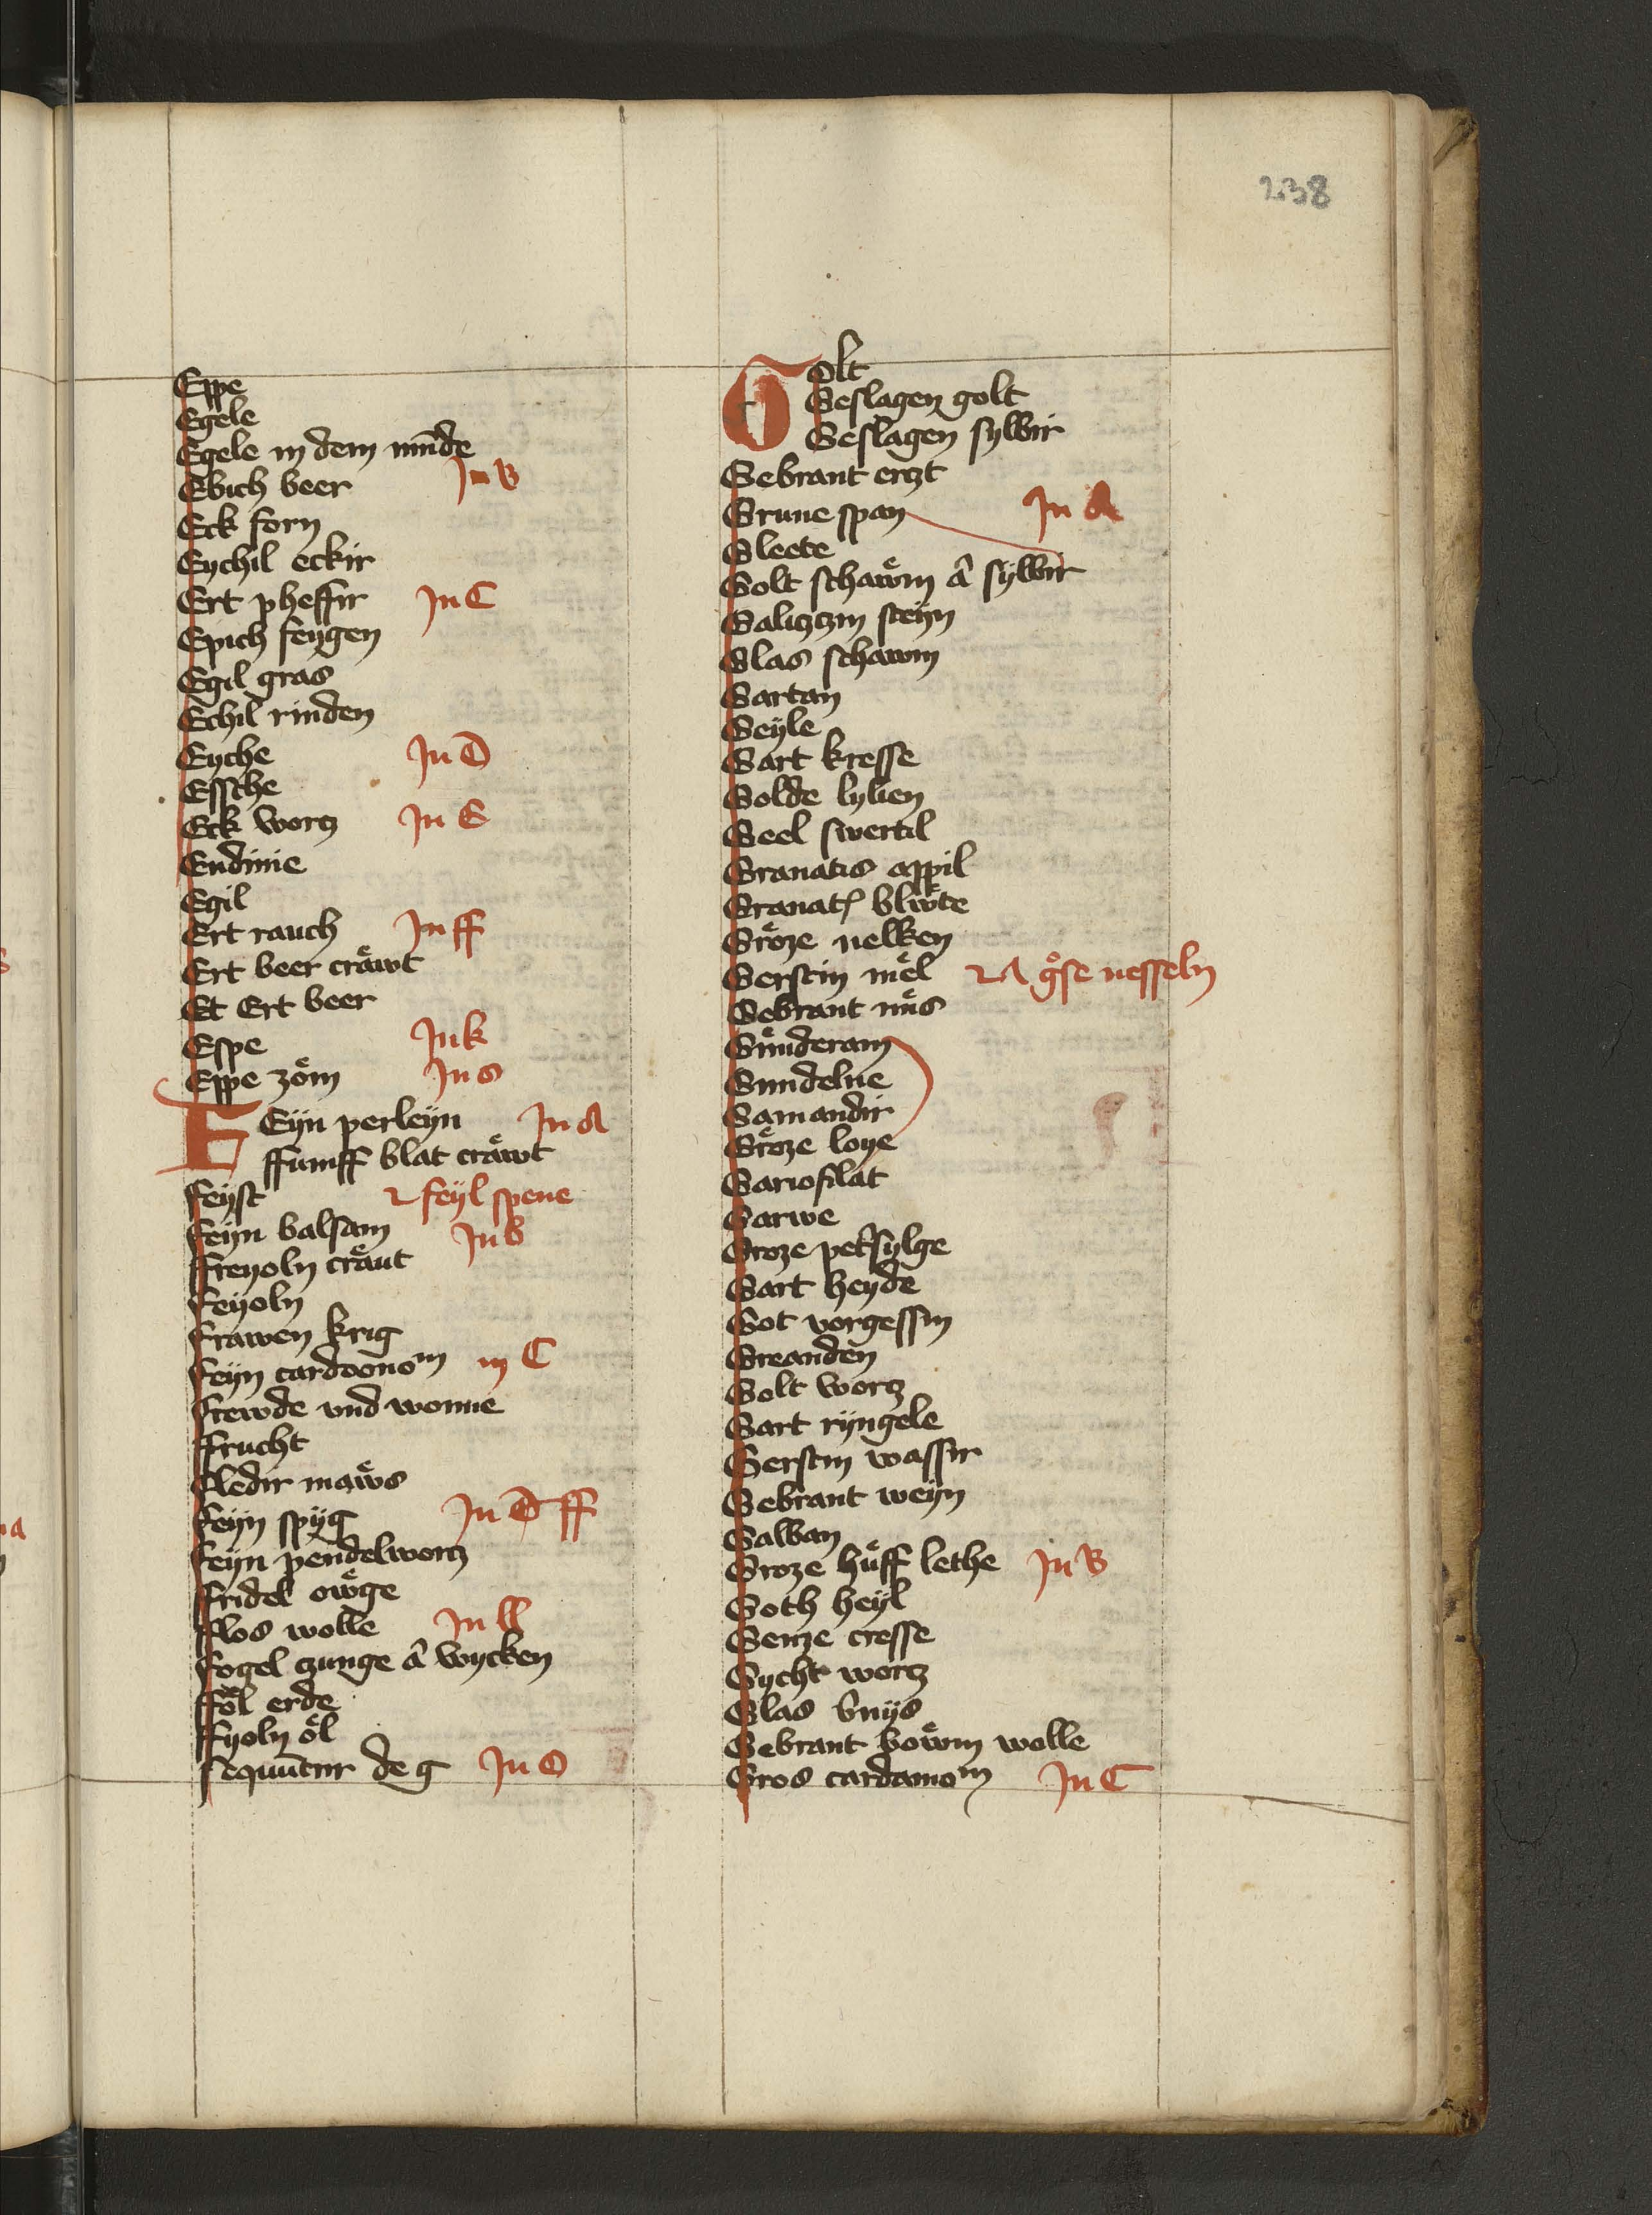 238
Eppe
Egele
Egele in dem mūde
Ebich beer In B
Eck forn
Eychil eckir
Ert pheffir In C
Epich feygen
Egil gras
Echil rinden
Eyche In D
Essche
Eck worcz In E
Endiuie
Egil
Ert rauch In ff
Ert beer crawͤt
Et Ert beer
Espe In k
Eppe zoͤm In s
FEyn perleyn In A
ffumff blat crawͤt
feyst feyl spene
feyn balsam In b
ffreyoln craͤut
feyoln
frawen krig
feyn cardoonom in C
frewde vnd wonne
ffrucht
fledir maẅs
feyn spyg In D ff
feyn pendelworcz
ffridel oẅge
fflos wolle In ll
fogel czunge a᷑ wycken
ffoͤl erde
ffyoln oͤl
sequūtur de g In O
Golt
Geslagen golt
Geslagen sylbir
Gebrant erczt
Grune span In A
Gleete
Golt schaẅm a᷑ sylbir
Galiczczin steyn
Glas schawm
Gartan
Geyle
Gart kresse
Golde lylien
Geel swertil
Granatis appil
Granat blwͤte
Groͤze nelken
Gerstin meͤl A goͤse nesseln
Gebrant
Gunderam
Gundelne
Gamandir
Groͤze loye
Gariofilat
Garwe
Groze pet'sylge
Gart heyde
Got vorgessin
Greanden
Golt worcz
Gart ryngele
Gerstin wassir
Gebrant weyn
Galban
Groze huͤff lethe In B
Goth heyl
Genze cresse
Gycht worcz
Glas
Gebrant boẅm wolle
Gros cardamom In C